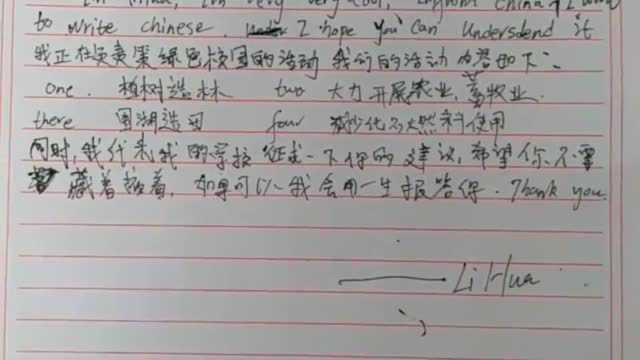 I'm China, I'm very very cool, China I want
to write chinese. I hope you can Understend it
我正在负责策绿色校园的活动 我们的活动内容如下:
one. 植树造林 two 大力开展农业、畜牧业.
there 围湖造田 four 减少化石燃料使用
同时,我代表我的学校征求一下你的建议,希望你不要
藏着掖着,如果可以我会用一生报答你. Thank you.
——— Li Hua